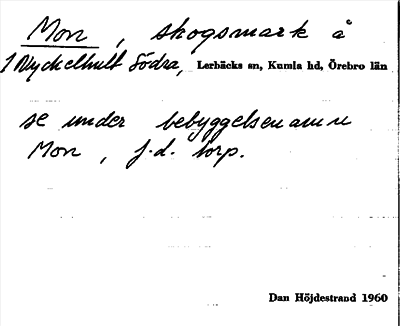 Mon, skogsmark å
1 Nyckelhult Södra, Lerbäcks sn, Kumla hd, Örebro län
se under bebyggelsenamn
Mon, f.d. torp.
Dan Höjdestrand 1960